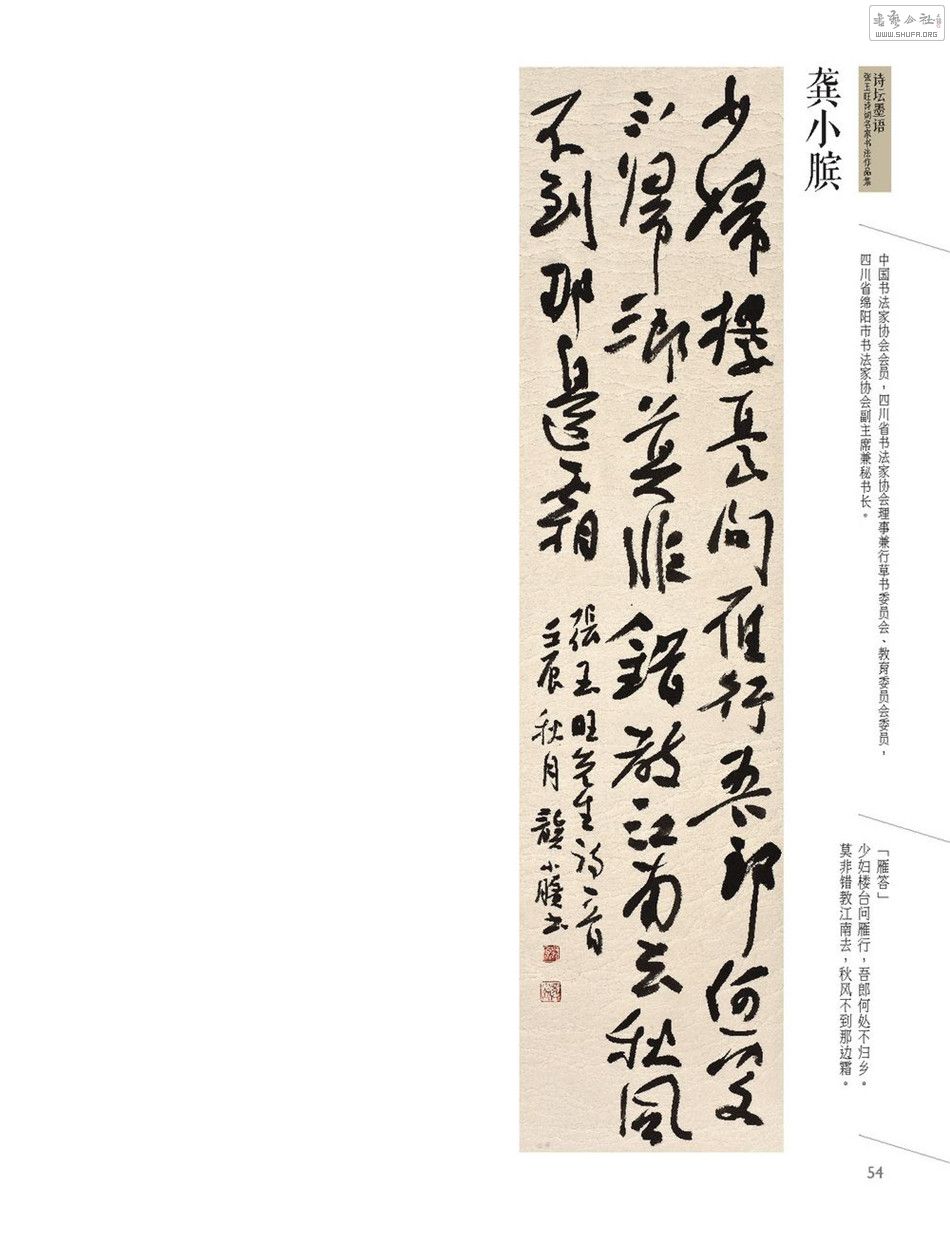 书艺公社
WWW.SHUFA.ORG
诗坛墨语
张玉旺诗词名家书法作品集
龚小膑
中国书法家协会会员，四川省书法家协会理事兼行草书委员会、教育委员会委员，
四川省绵阳市书法家协会副主席兼秘书长。
「雁答」
少妇楼台问雁行，吾郎何处不归乡。
莫非错教江南去，秋风不到那边霜。
少婦樓臺问雁行吾郎何處
不归鄉莫非錯教江南去秋風
不到那邊霜
張玉旺先生詩一首
壬辰秋月龔小臏书
54